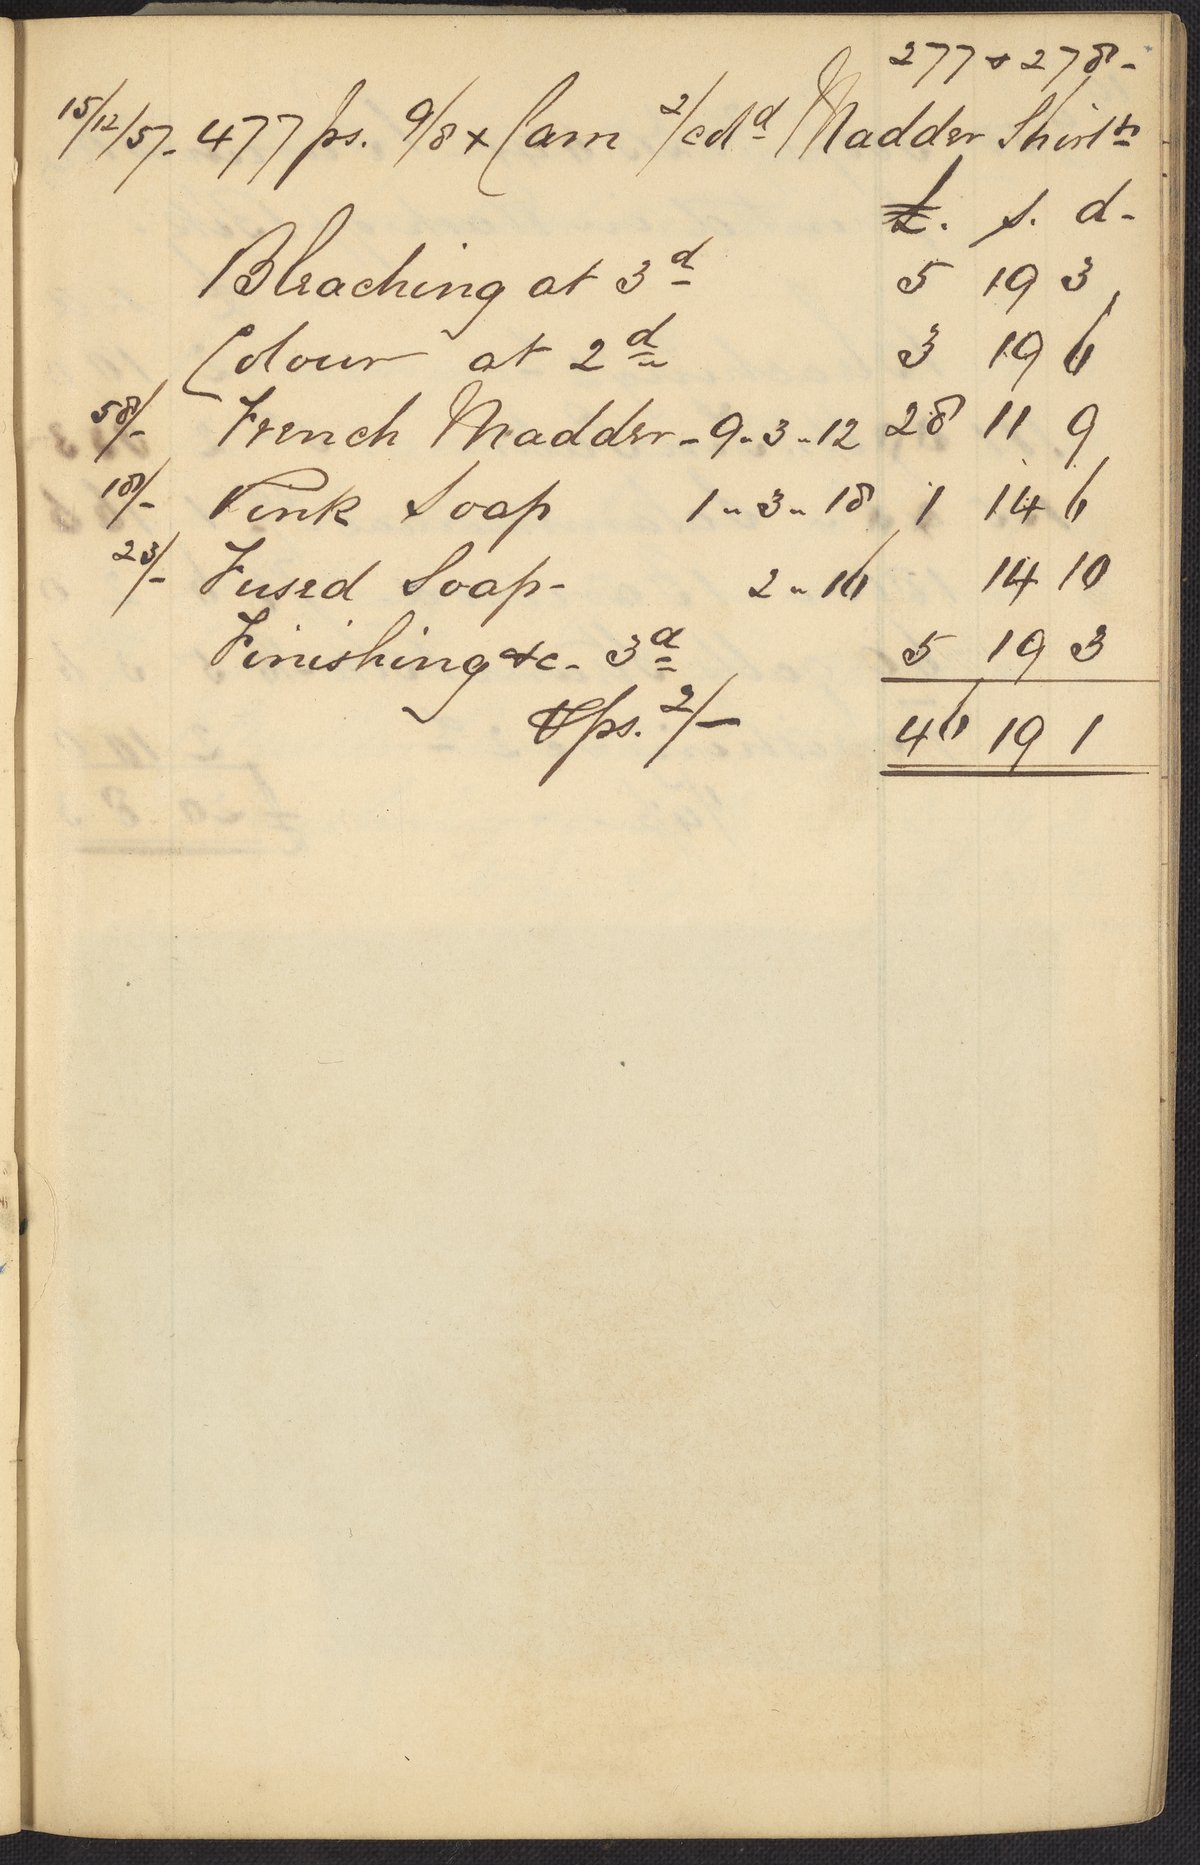 277 & 278-
15/12/57- 477 ps. 9/8 x Cam 2/cdᵈ Madder Shirtᵍˢ
£. s. d-
Bleaching at 3ᵈ 5 19 3
Colour at 2ᵈ 3 19 6
58/- French Madder - 9 " 3 " 12 28 11 9
18/- Pink Soap 1 " 3 " 18 1 14 6
23/- Fused Soap - 2 " 16 14 10
Finishing &c - 3ᵈ 5 19 3
ps. 2/- 46 19 1